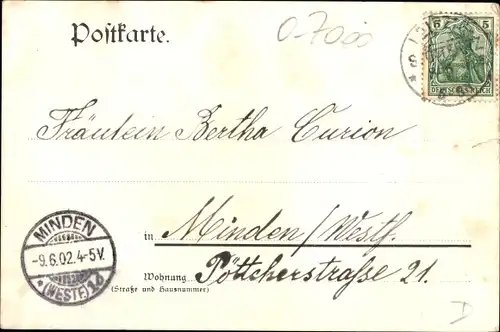 Postkarte.
0-7000
5 5
DEUTSCHES REICH
Fräulein Bertha Curion
in Minden/Westf.
Wohnung Pöttcherstraße 21.
(Straße und Hausnummer)
MINDEN
-9.6.02.4-5V.
* (WESTF) 1b
D